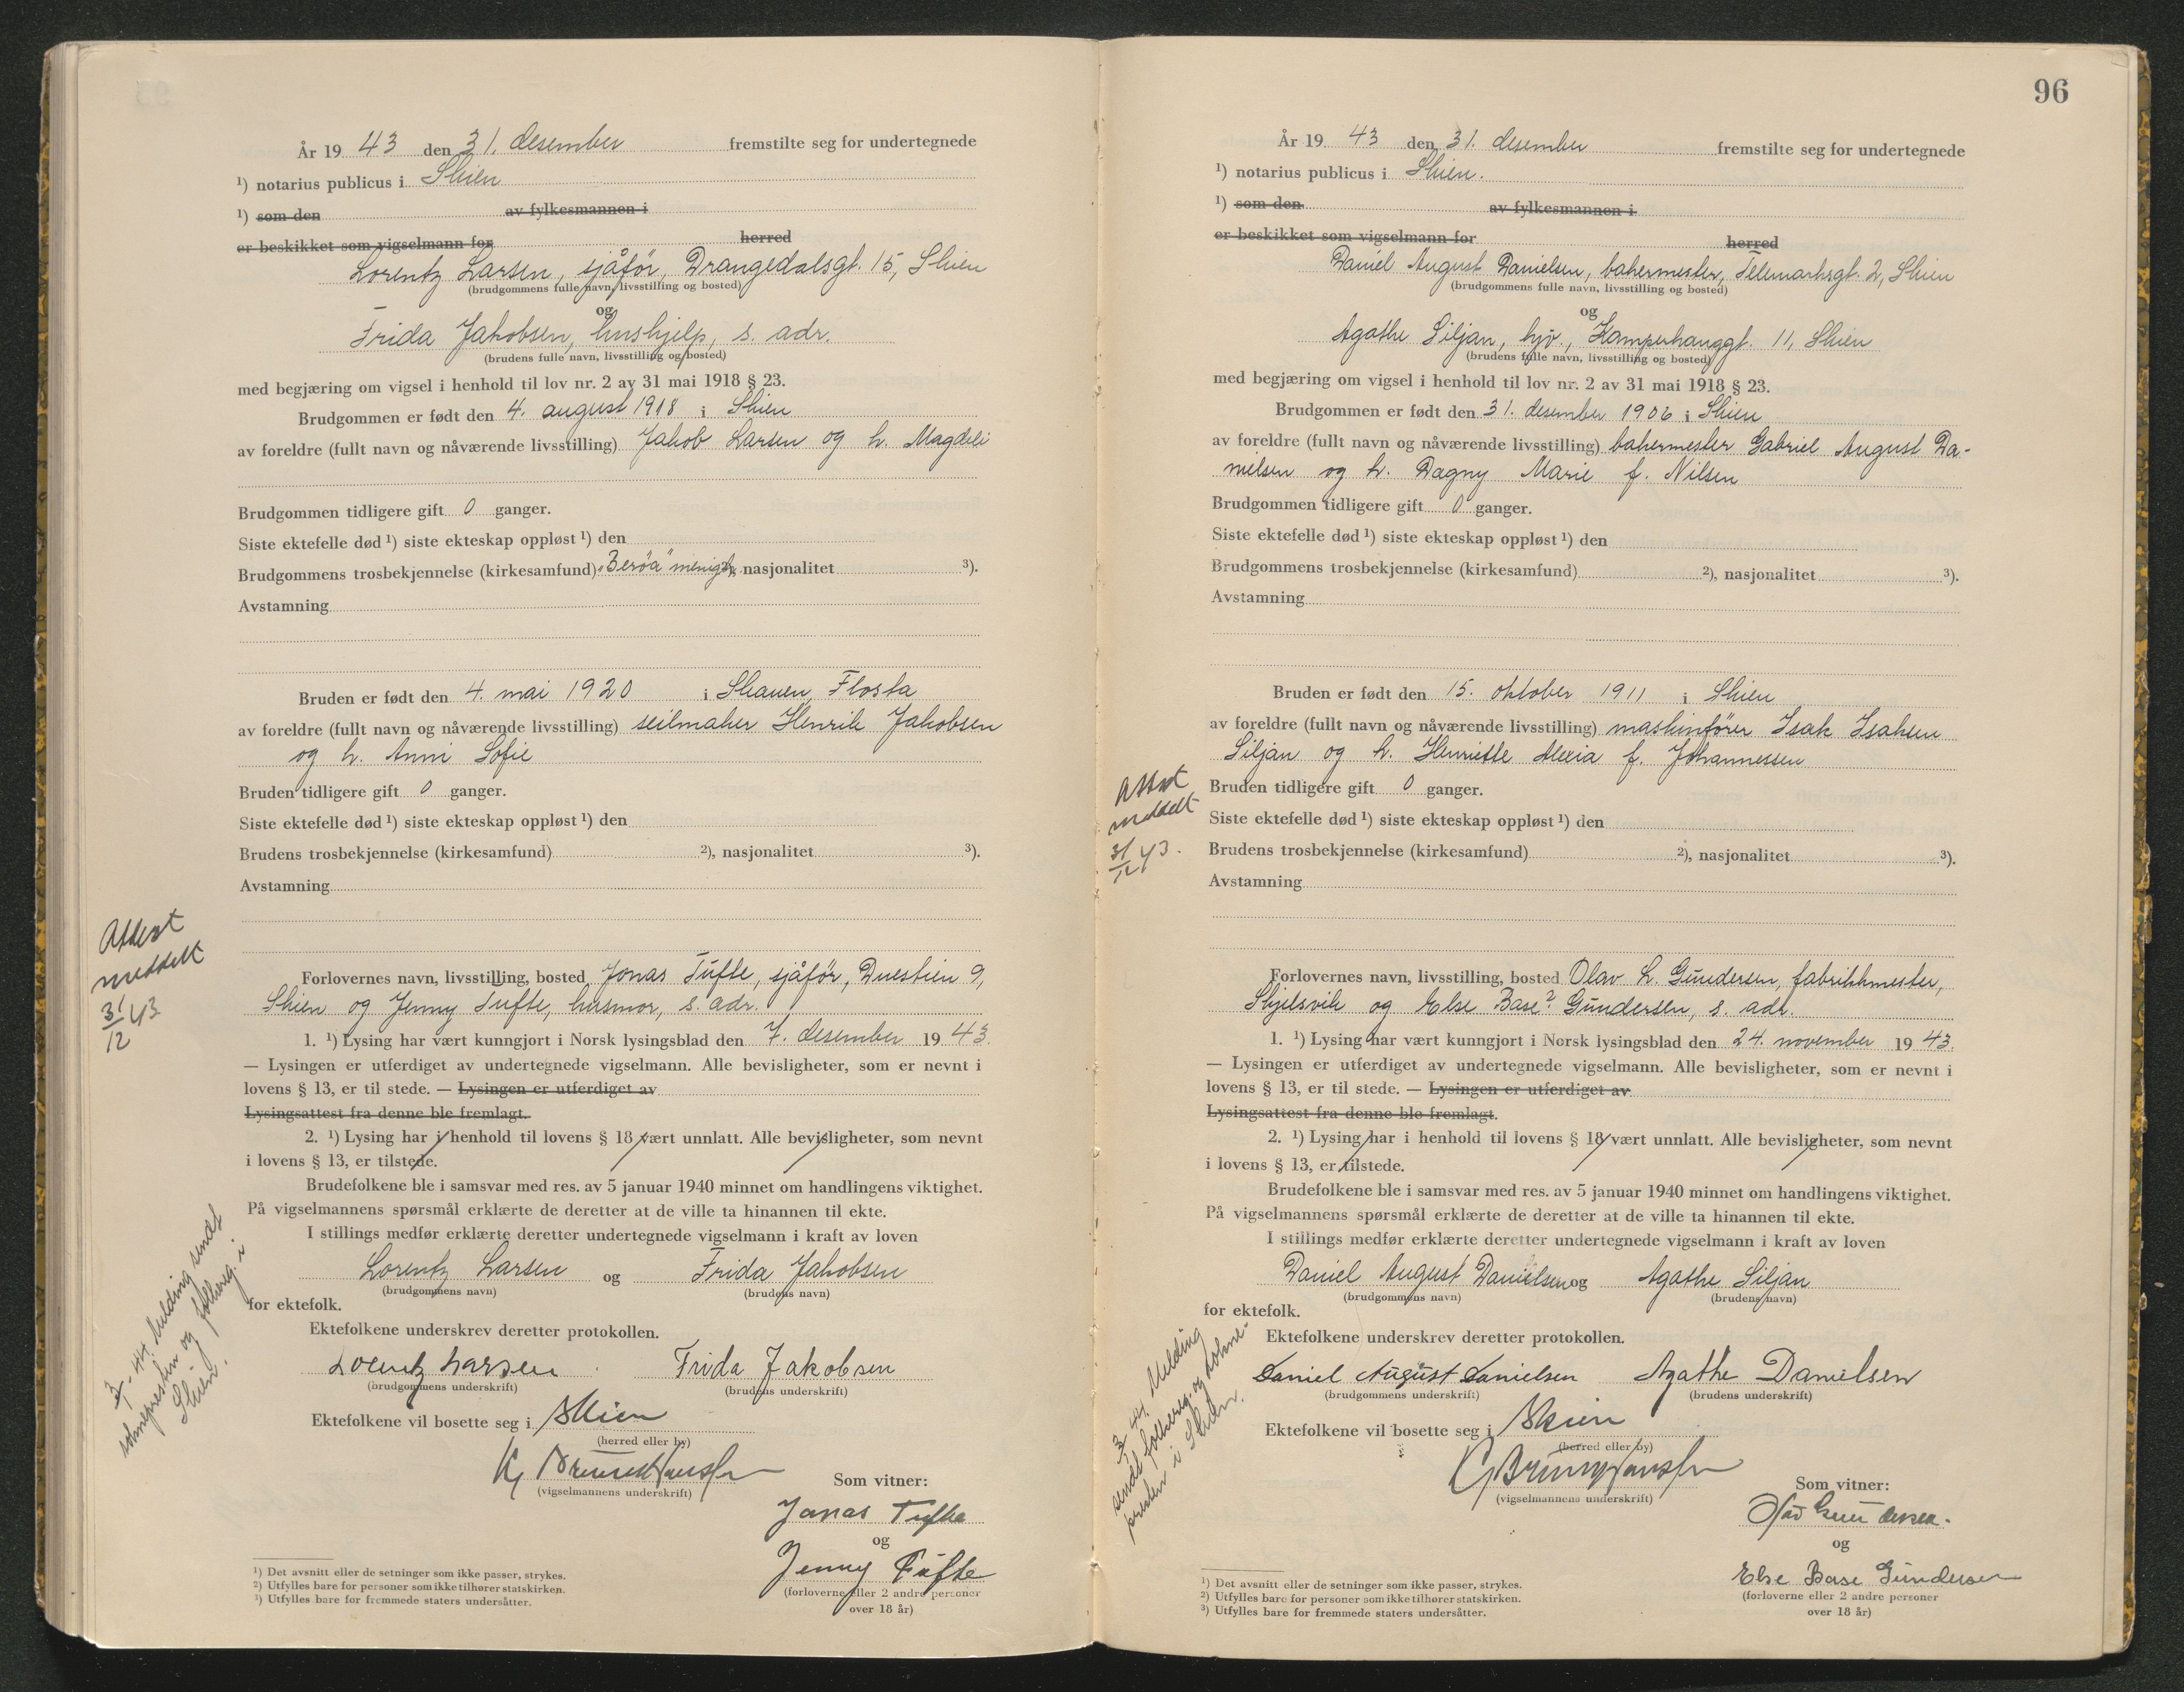 År 19 43 den 31. desember fremstilte seg for undertegnede
¹) notarius publicus i Skien
¹) som den av fylkesmannen i
er beskikket som vigselmann for herred
Lorentz Larsen, sjåför, Drangedalsgt. 15, Skien
(brudgommens fulle navn, livsstilling og bosted)
og
Frida Jakobsen, hushjelp, s. adr.
(brudens fulle navn, livsstilling og bosted)
med begjæring om vigsel i henhold til lov nr. 2 av 31 mai 1918 § 23.
Brudgommen er født den 4. august 1918 i Skien
av foreldre (fullt navn og nåværende livsstilling) Jakob Larsen og h. Magdeli
Brudgommen tidligere gift 0 ganger.
Siste ektefelle død ¹) siste ekteskap oppløst ¹) den
Brudgommens trosbekjennelse (kirkesamfund) "Beröa" menigh. nasjonalitet ³).
Avstamning
Bruden er født den 4. mai 1920 i Skauen, Flosta
av foreldre (fullt navn og nåværende livsstilling) seilmaker Henrik Jakobsen
og h. Anni Sofie
Bruden tidligere gift 0 ganger.
Siste ektefelle død ¹) siste ekteskap oppløst ¹) den
Brudens trosbekjennelse (kirkesamfund) ²), nasjonalitet ³).
Avstamning
Attest
meddelt
31/12 43
Forlovernes navn, livsstilling, bosted Jonas Tufte, sjåför, Duestien 9,
Skien og Jenny Tufte, husmor, s. adr.
1. ¹) Lysing har vært kunngjort i Norsk lysingsblad den 7. desember 19 43.
— Lysingen er utferdiget av undertegnede vigselmann. Alle bevisligheter, som er nevnt i
lovens § 13, er til stede. — Lysingen er utferdiget av
Lysingsattest fra denne ble fremlagt.
2. ¹) Lysing har i henhold til lovens § 18 vært unnlatt. Alle bevisligheter, som nevnt
i lovens § 13, er tilstede.
Brudefolkene ble i samsvar med res. av 5 januar 1940 minnet om handlingens viktighet.
På vigselmannens spørsmål erklærte de deretter at de ville ta hinannen til ekte.
I stillings medfør erklærte deretter undertegnede vigselmann i kraft av loven
Lorentz Larsen og Frida Jakobsen
(brudgommens navn) (brudens navn)
for ektefolk.
Ektefolkene underskrev deretter protokollen.
Lorentz Larsen Frida Jakobsen
(brudgommens underskrift) (brudens underskrift)
44. Melding sendt
soknepresten og folkereg. i
Skien.
Ektefolkene vil bosette seg i Skien
(herred eller by)
(vigselmannens underskrift)
Som vitner:
Jonas Tufte
og
Jenny Tufte
(forloverne eller 2 andre personer
over 18 år)
¹) Det avsnitt eller de setninger som ikke passer, strykes.
²) Utfylles bare for personer som ikke tilhører statskirken.
³) Utfylles bare for fremmede staters undersåtter.
96
År 19 43 den 31. desember fremstilte seg for undertegnede
¹) notarius publicus i Skien.
¹) som den av fylkesmannen i
er beskikket som vigselmann for herred
Daniel August Danielsen, bakermester, Telemarksgt. 2, Skien
(brudgommens fulle navn, livsstilling og bosted)
og
Agathe Siljan, hjv., Kamperhauggt. 11, Skien
(brudens fulle navn, livsstilling og bosted)
med begjæring om vigsel i henhold til lov nr. 2 av 31 mai 1918 § 23.
Brudgommen er født den 31. desember 1906 i Skien
av foreldre (fullt navn og nåværende livsstilling) bakermester Gabriel August Da-
nielsen og h. Dagny Marie f. Nilsen
Brudgommen tidligere gift 0 ganger.
Siste ektefelle død ¹) siste ekteskap oppløst ¹) den
Brudgommens trosbekjennelse (kirkesamfund) ²), nasjonalitet ³).
Avstamning
Bruden er født den 15. oktober 1911 i Skien
av foreldre (fullt navn og nåværende livsstilling) maskinförer Isak Isaksen
Siljan og h. Henriette Alexia f. Johannessen
Attest
meddelt
31/12 43.
Bruden tidligere gift 0 ganger.
Siste ektefelle død ¹) siste ekteskap oppløst ¹) den
Brudens trosbekjennelse (kirkesamfund) ²), nasjonalitet ³).
Avstamning
Forlovernes navn, livsstilling, bosted Olav h. Gundersen, fabrikkmester,
Skjelsvik og Else Base? Gundersen, s. adr.
1. ¹) Lysing har vært kunngjort i Norsk lysingsblad den 24. november 19 43.
— Lysingen er utferdiget av undertegnede vigselmann. Alle bevisligheter, som er nevnt i
lovens § 13, er til stede. — Lysingen er utferdiget av
Lysingsattest fra denne ble fremlagt.
2. ¹) Lysing har i henhold til lovens § 18 vært unnlatt. Alle bevisligheter, som nevnt
i lovens § 13, er tilstede.
Brudefolkene ble i samsvar med res. av 5 januar 1940 minnet om handlingens viktighet.
På vigselmannens spørsmål erklærte de deretter at de ville ta hinannen til ekte.
I stillings medfør erklærte deretter undertegnede vigselmann i kraft av loven
Daniel August Danielsen og Agathe Siljan
(brudgommens navn) (brudens navn)
for ektefolk.
Ektefolkene underskrev deretter protokollen.
Daniel August Danielsen Agathe Danielsen
(brudgommens underskrift) (brudens underskrift)
44. Melding
sendt folkereg. og sokne-
presten i Skien.
Ektefolkene vil bosette seg i Skien
(herred eller by)
(vigselmannens underskrift)
Som vitner:
Olav Gundersen.
og
Else Base Gundersen
(forloverne eller 2 andre personer
over 18 år)
¹) Det avsnitt eller de setninger som ikke passer, strykes.
²) Utfylles bare for personer som ikke tilhører statskirken.
³) Utfylles bare for fremmede staters undersåtter.